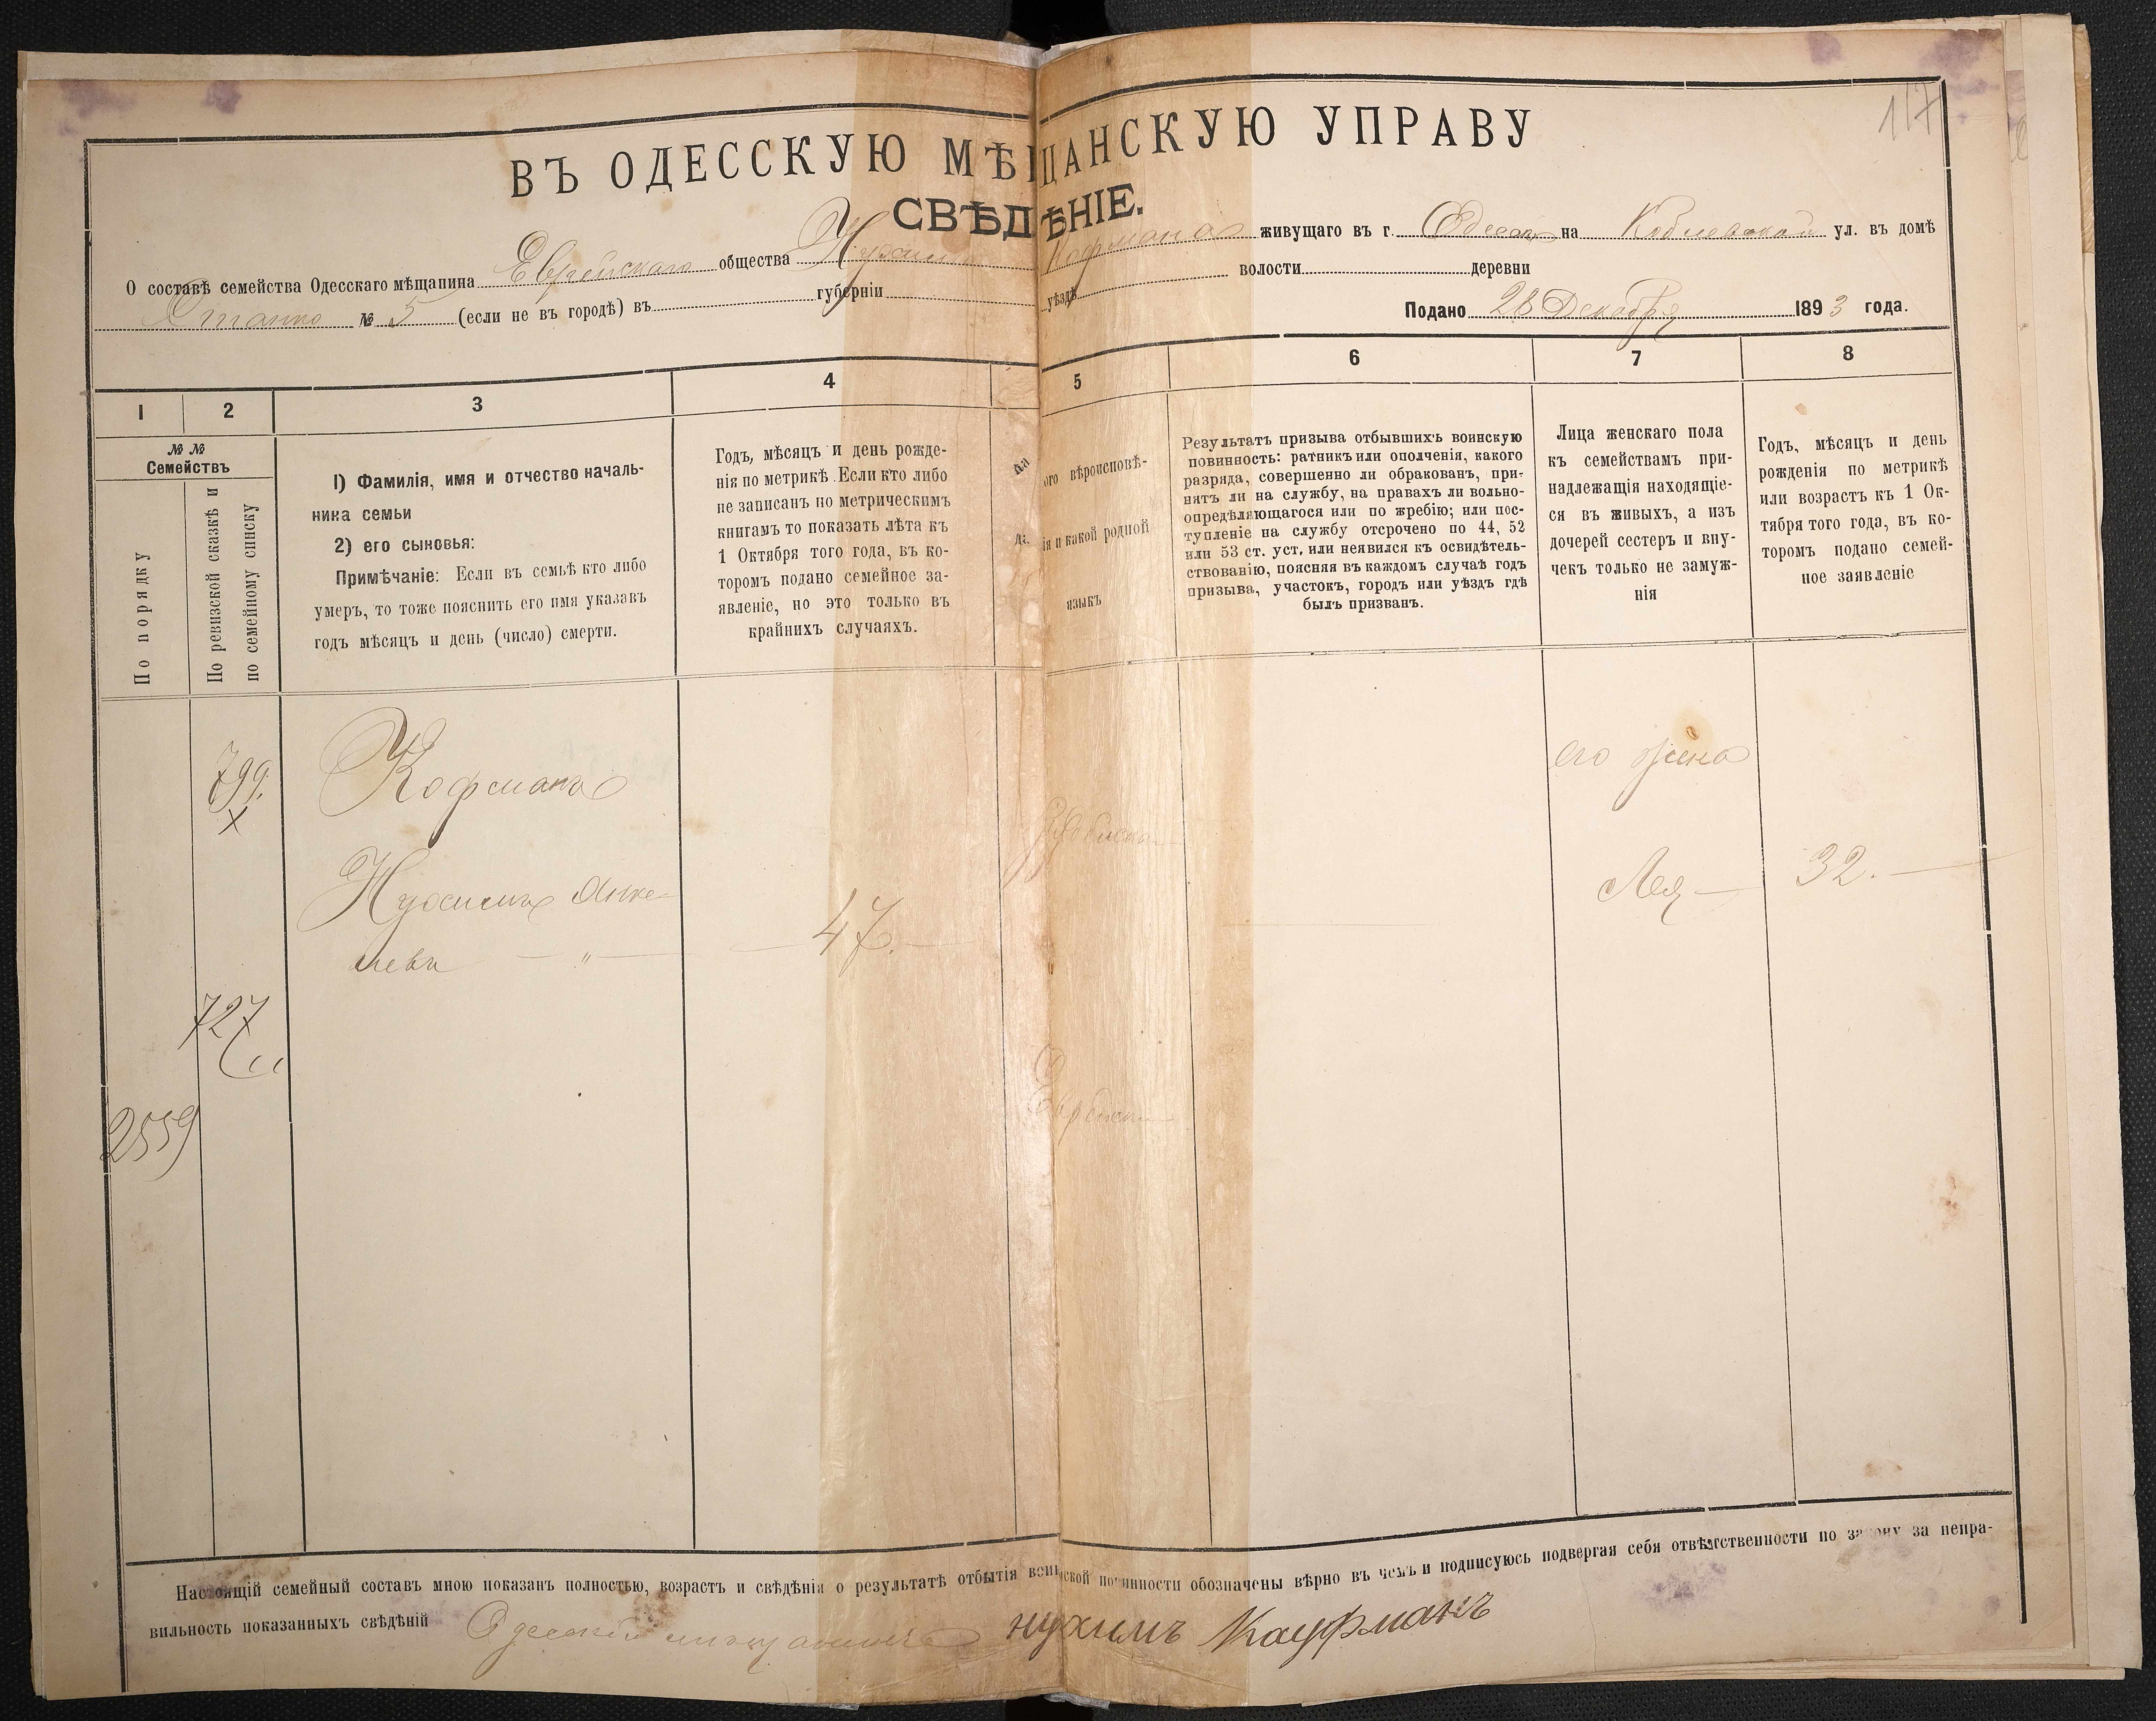 117
ВЪ ОДЕССКУЮ МѢЩАНСКУЮ УПРАВУ
СВѢДѢНІЕ.
О составѣ семейства Одесскаго мѣщанина Еврейскаго общества Нухима Кофмана живущаго въ г. Одессѣ на Коблевской ул. въ домѣ
№ 5 (если не въ городѣ) въ губерніи уѣздѣ волости деревни
Подано 28 Декабря 1893 года.
1 2 3 4 5 6 7 8
№ №
Семействъ
По порядку
По ревизской сказкѣ и
по семейному списку
1) Фамилія, имя и отчество началь-
ника семьи
2) его сыновья:
Примѣчаніе: Если въ семьѣ кто либо
умеръ, то тоже пояснить его имя указавъ
годъ мѣсяцъ и день (число) смерти.
Годъ, мѣсяцъ и день рожде-
нія по метрикѣ. Если кто либо
не записанъ по метрическимъ
книгамъ то показать лѣта къ
1 Октября того года, въ ко-
торомъ подано семейное за-
явленіе, но это только въ
крайнихъ случаяхъ.
Ка
ого вѣроисповѣ-
да
ія и какой родной
языкъ
Результатъ призыва отбывшихъ воинскую
повинность: ратникъ или ополченія, какого
разряда, совершенно ли обракованъ, при-
нятъ ли на службу, на правахъ ли вольно-
опредѣляющагося или по жребію; или пос-
тупленіе на службу отсрочено по 44, 52
или 53 ст. уст, или неявился къ освидѣтель-
ствованію, поясняя въ каждомъ случаѣ годъ
призыва, участокъ, городъ или уѣздъ гдѣ
былъ призванъ.
Лица женскаго пола
къ семействамъ при-
надлежащія находящіе-
ся въ живыхъ, а изъ
дочерей сестеръ и вну-
чекъ только не замуж-
нія
Годъ, мѣсяцъ и день
рожденія по метрикѣ
или возрастъ къ 1 Ок-
тября того года, въ ко-
торомъ подано семей-
ное заявленіе
799.
x
Кофманъ
Нухимъ Янке-
левъ — " —
— 47. —
его жена
Лея —
32. —
727
2559
Настоящій семейный составъ мною показанъ полностью, возрастъ и свѣдѣнія о результатѣ отбытія воинской повинности обозначены вѣрно въ чемъ и подписуюсь подвергая себя отвѣтственности по закону за непра-
вильность показанныхъ свѣдѣній Одесскій мещанинъ нухимъ Кауфманъ